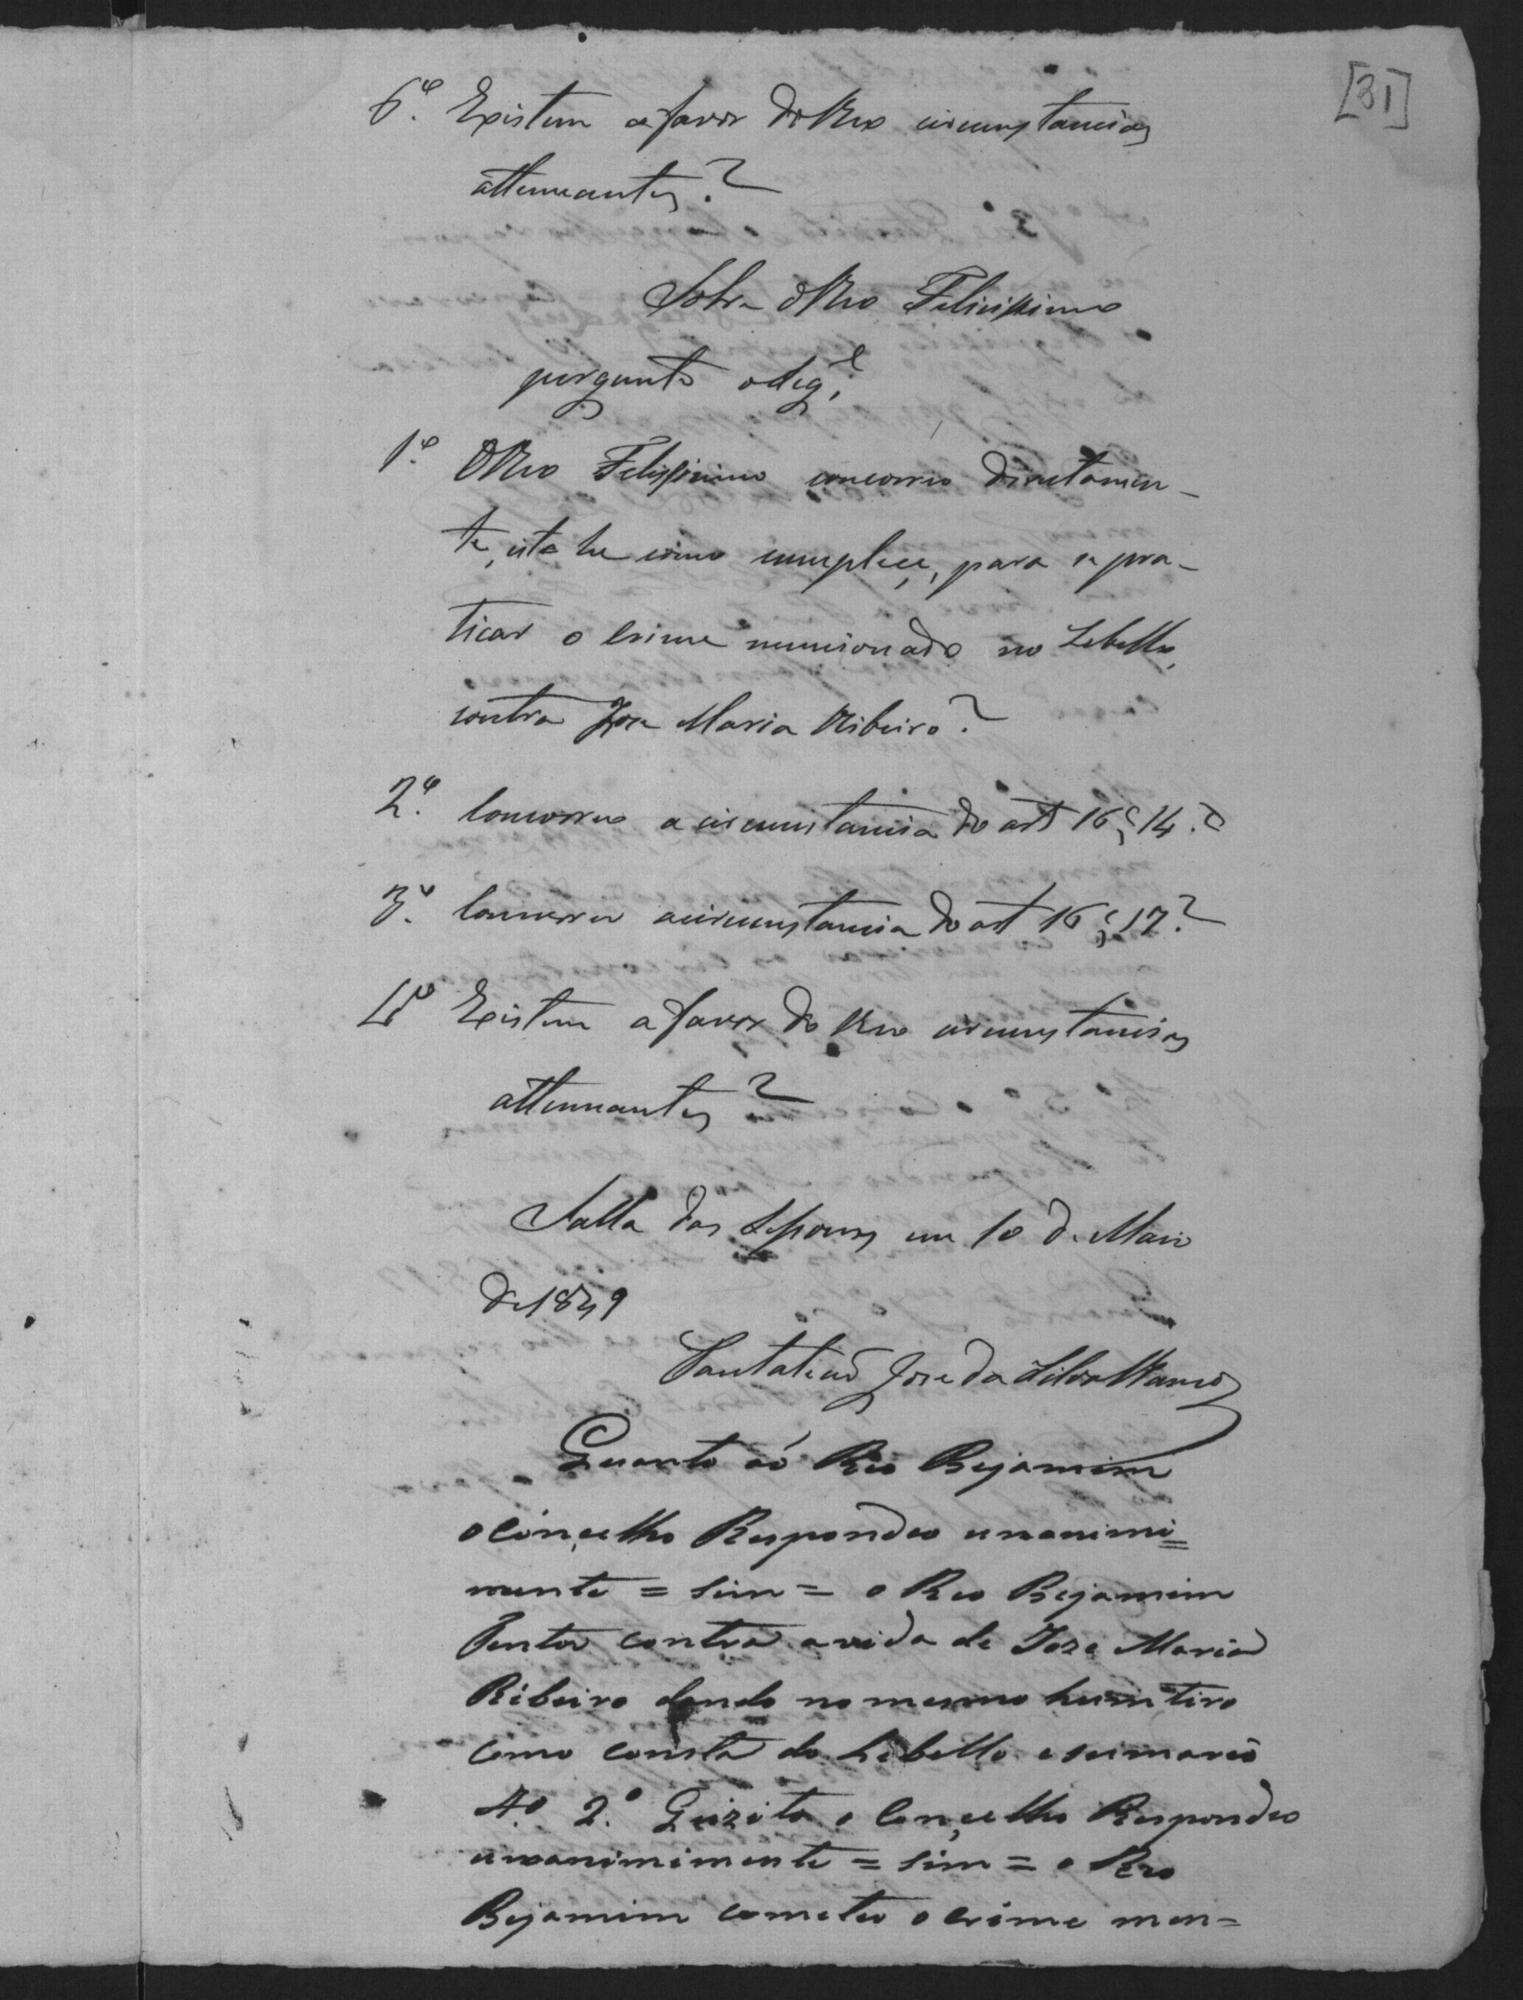 [31]
6º. Existem a favor do Reo circunstancias
attenuantes?
Sobre o Reo Felicissimo
pergunto o seg.e
1º. O Reo Felissimo concorreo directamen-
te, isto he como cumplece, para se pra-
ticar o crime mencionado no Lebello,
contra Jose Maria Ribeiro?
2º. Concorreo a circunstancia do art 16 § 14.?
3º. Concorreu a circunstancia do art 16 § 17?
4º Existem a favor do Reo circunstancias
attenuantes?
Salla das Sessoens em 10 de Maio
de 1849
Pantaleaõ Jose da Silva Ramos
Quanto aó Reo Bejamim
o Concelho Respondeo unanimi=
mente = sim = o Reo Bejamim
Tentou contra a vida de Joze Maria
Ribeiro dando no mesmo hum tiro
como consta do Libello e sumario
Aº. 2.º Quizito o Concelho Respondeo
unanimimente = sim = o Reo
Bejamim cometeo o crime men=